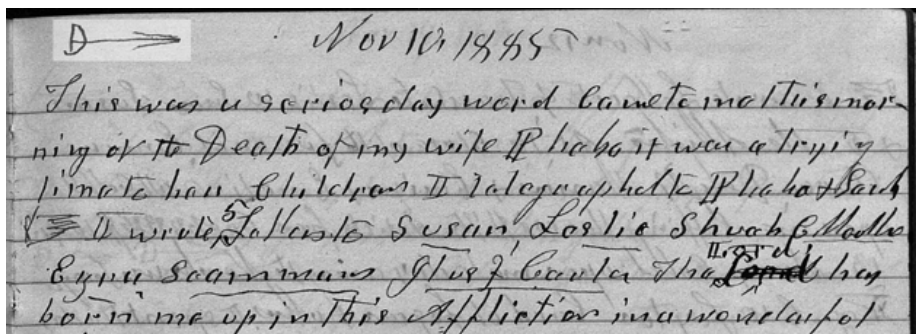 D
Nov 10, 1885
This was a serios day word Came to me this mor-
ning of the Death of my wife Phebe it was a tryi g
time to her Children I Telegraphed to Phebe & Sarah
I wrote 5 Letters to Susan, Leslie Shuah
Ezra The Lord has
born me up in this Affliction in a wonderful